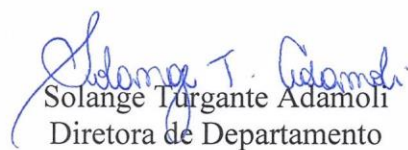 Solange T. Adamoli
Solange Turgante Adamoli
Diretora de Departamento